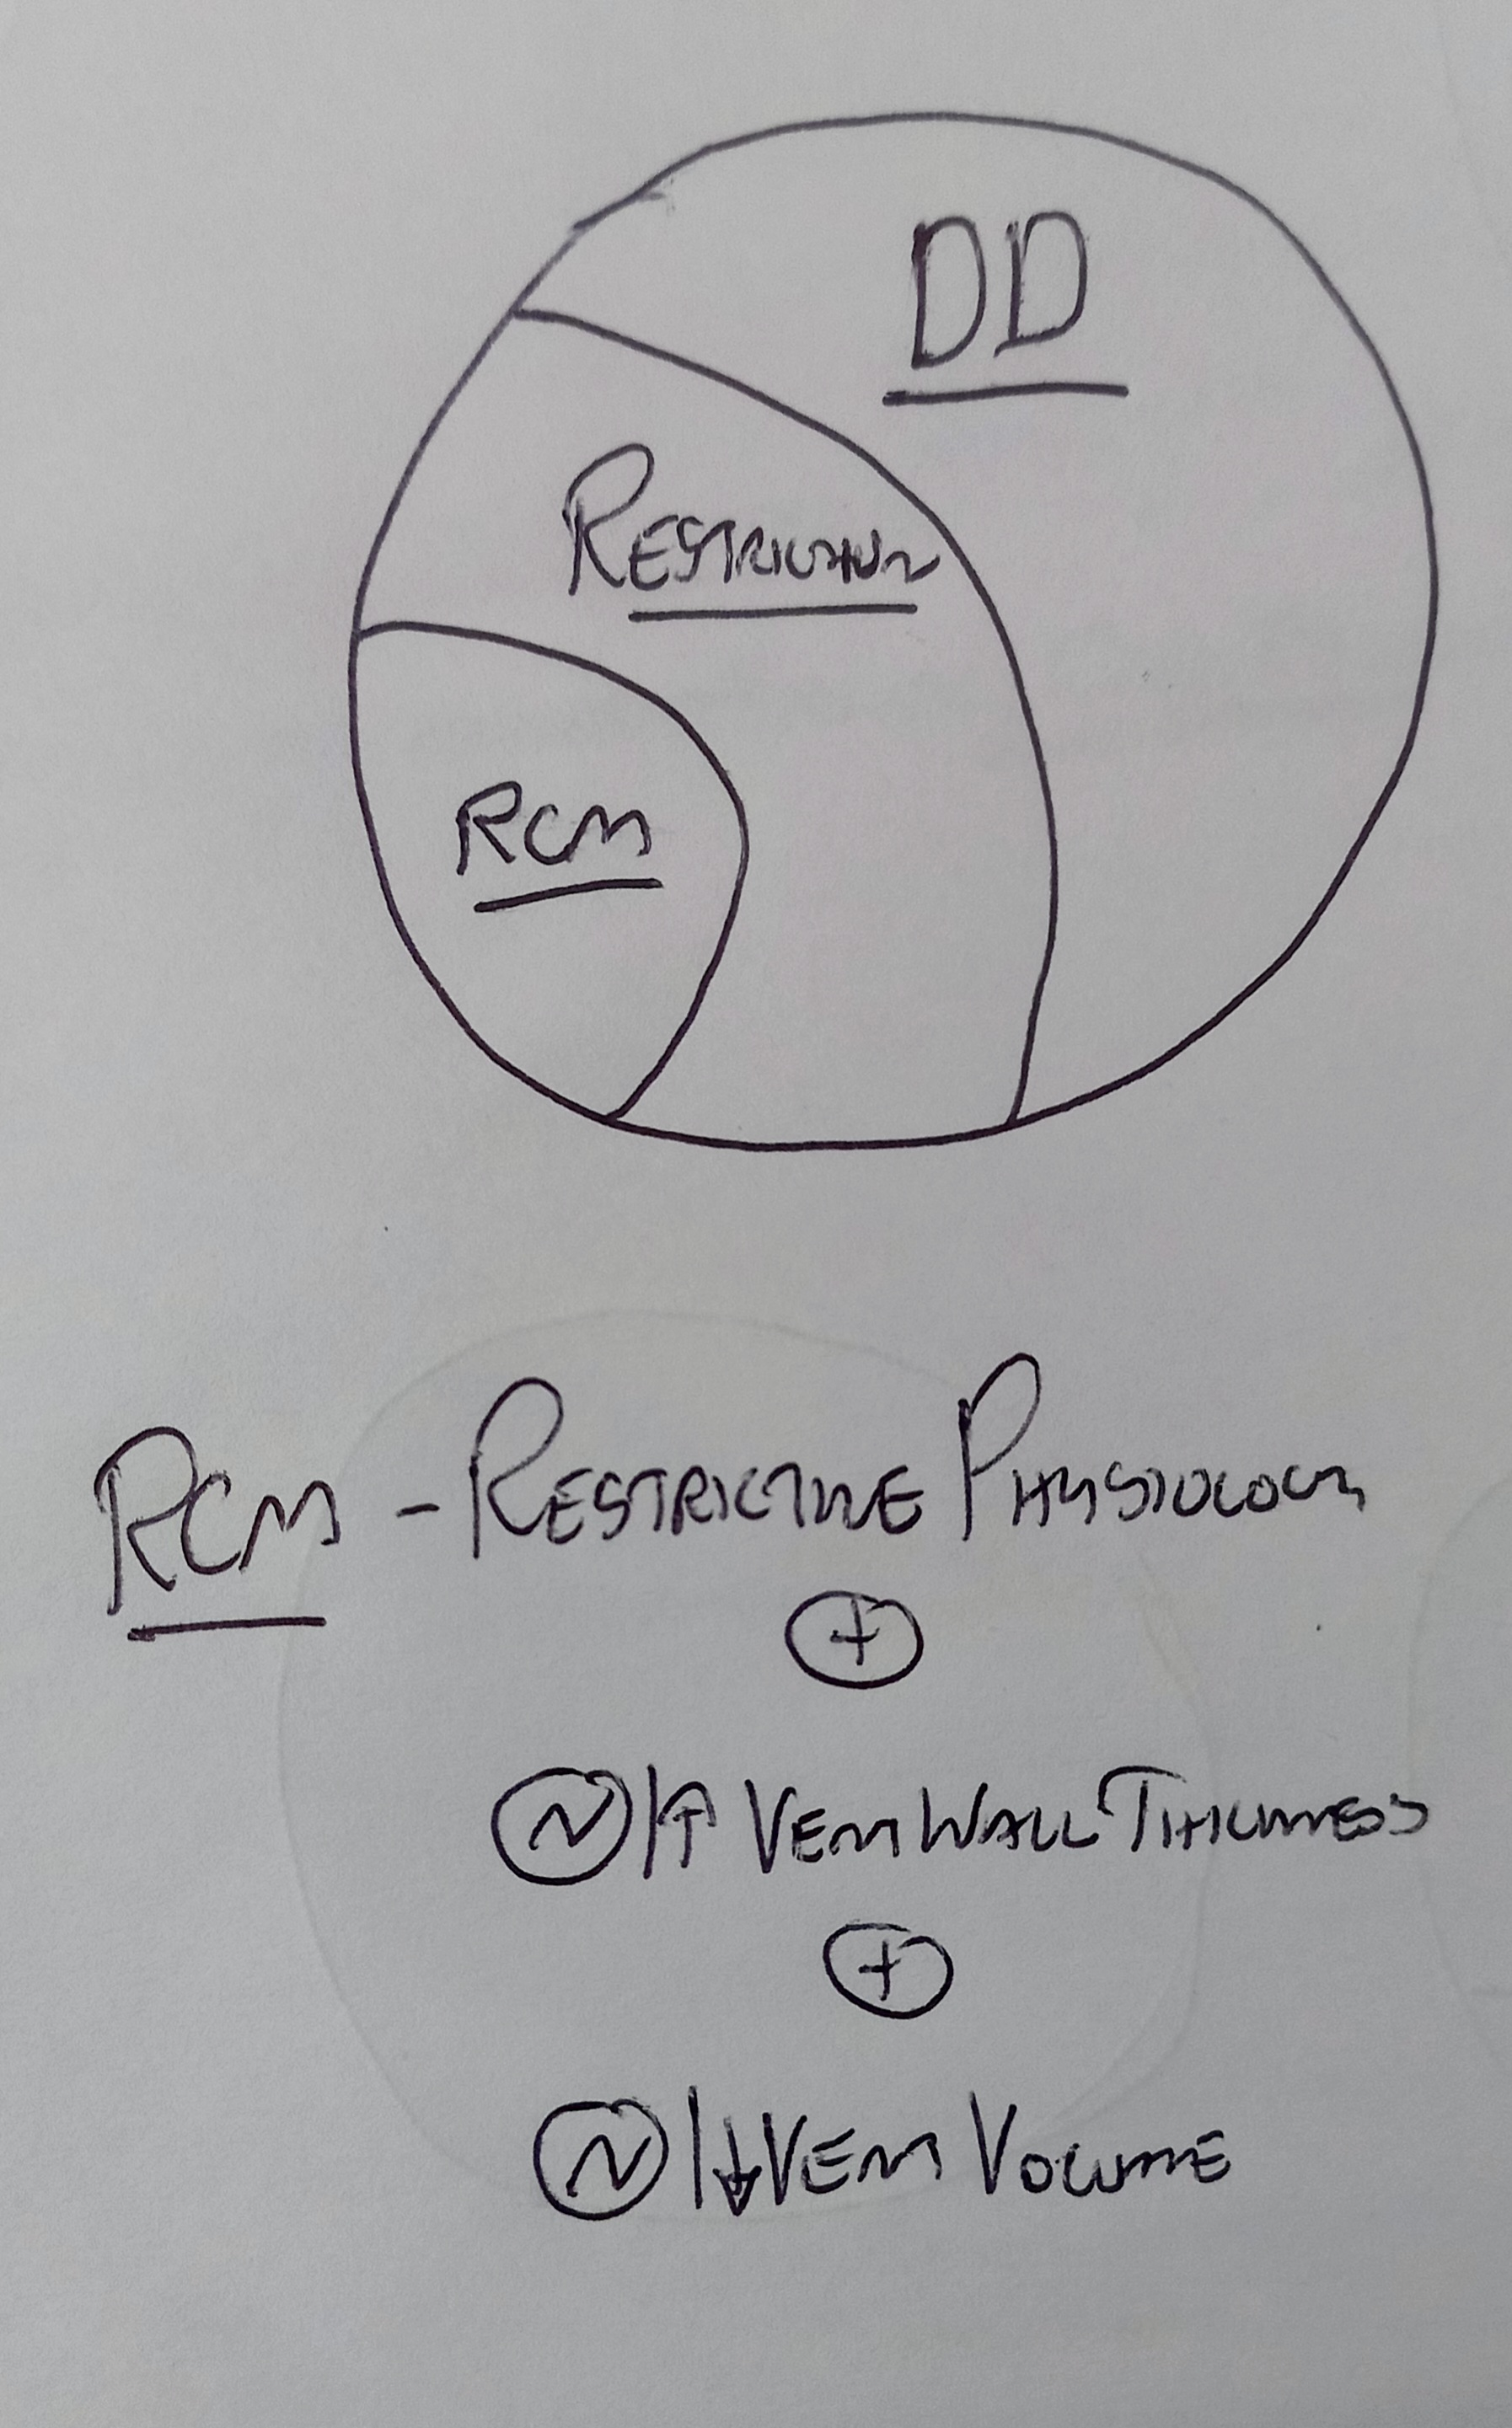 DD
RESTRICTION
RCM
RCM - RESTRICTIVE PHYSIOLOGY
+
N/↑ VENM WALL THICKNESS
+
N/↓ VENM VOLUME